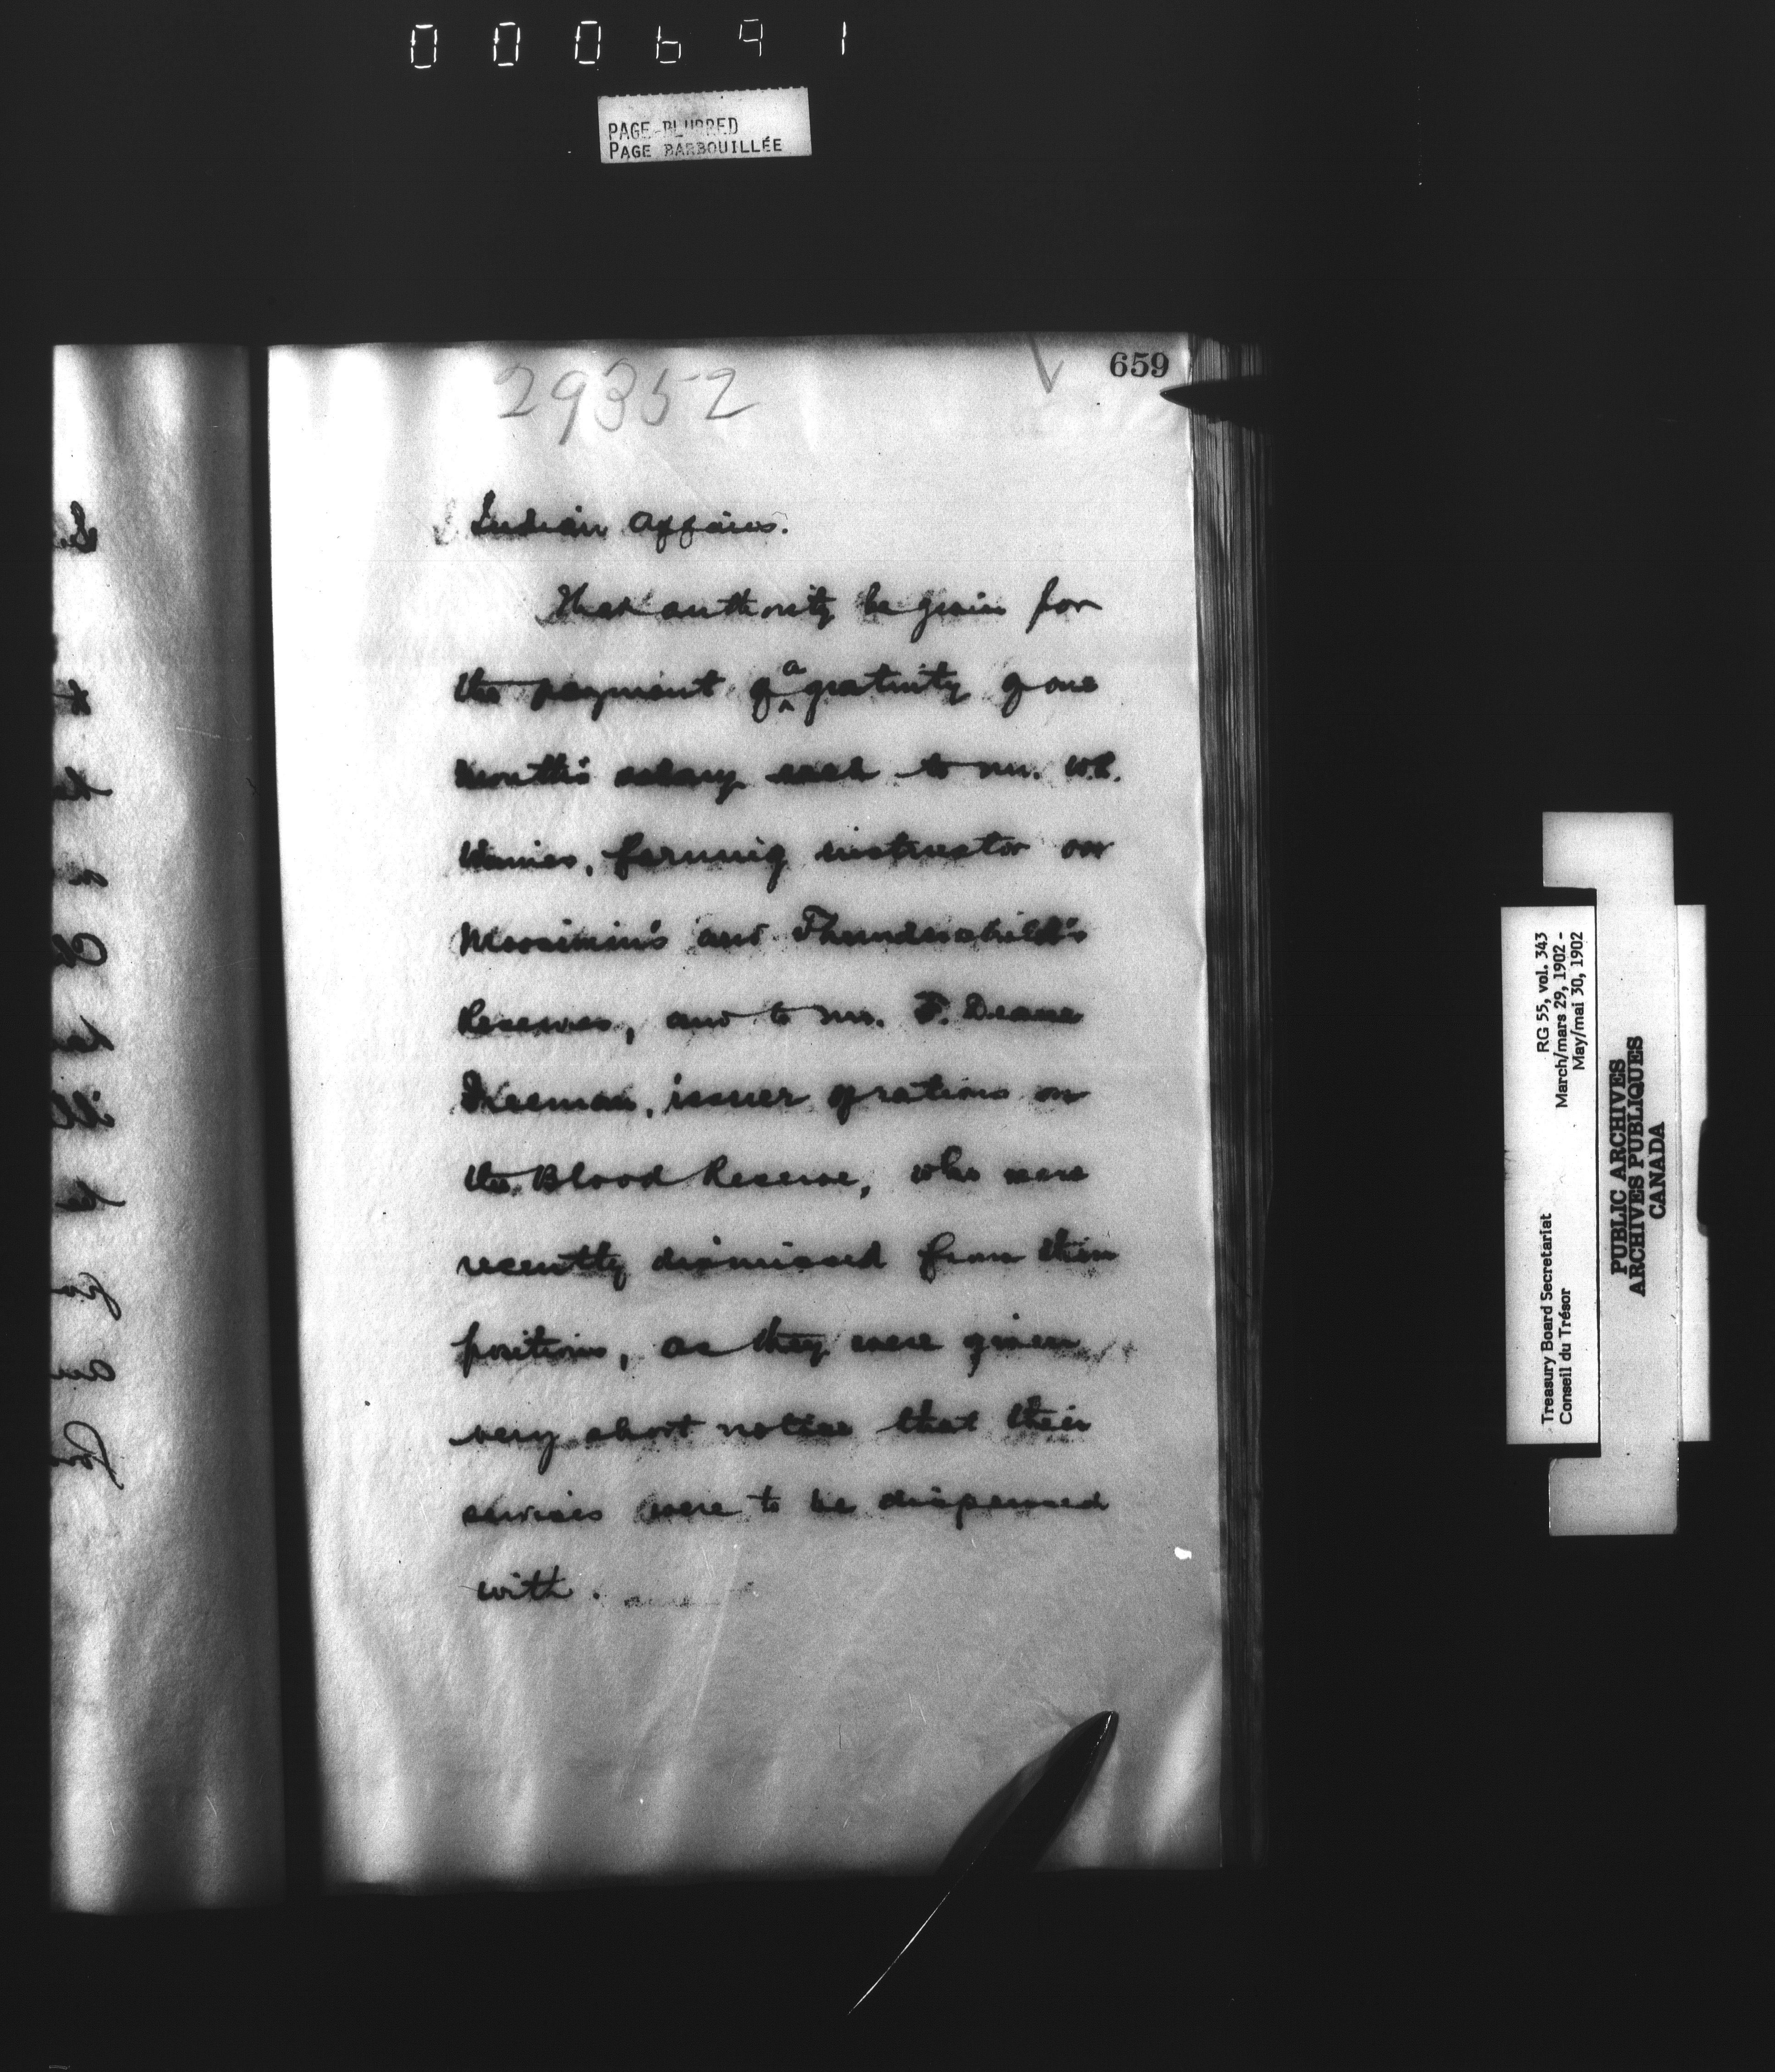 000691
PAGE BLURRED
PAGE BARBOUILLÉE
659
29352
Indian Affairs.
That authority be given for
the payment of a gratuity of one
month's salary each to Mr. W.E.
farming instructor on
Moosimin's and Thunderchild's
Reserves, and to Mr. F. Deane
Freeman, issuer of rations on
the Blood Reserve, who were
recently dismissed from their
positions, as they were given
very short notice that their
services were to be dispensed
with.
RG 55, vol. 343
March/mars 29, 1902 -
May/mai 30, 1902
Treasury Board Secretariat
Conseil du Trésor
PUBLIC ARCHIVES
ARCHIVES PUBLIQUES
CANADA